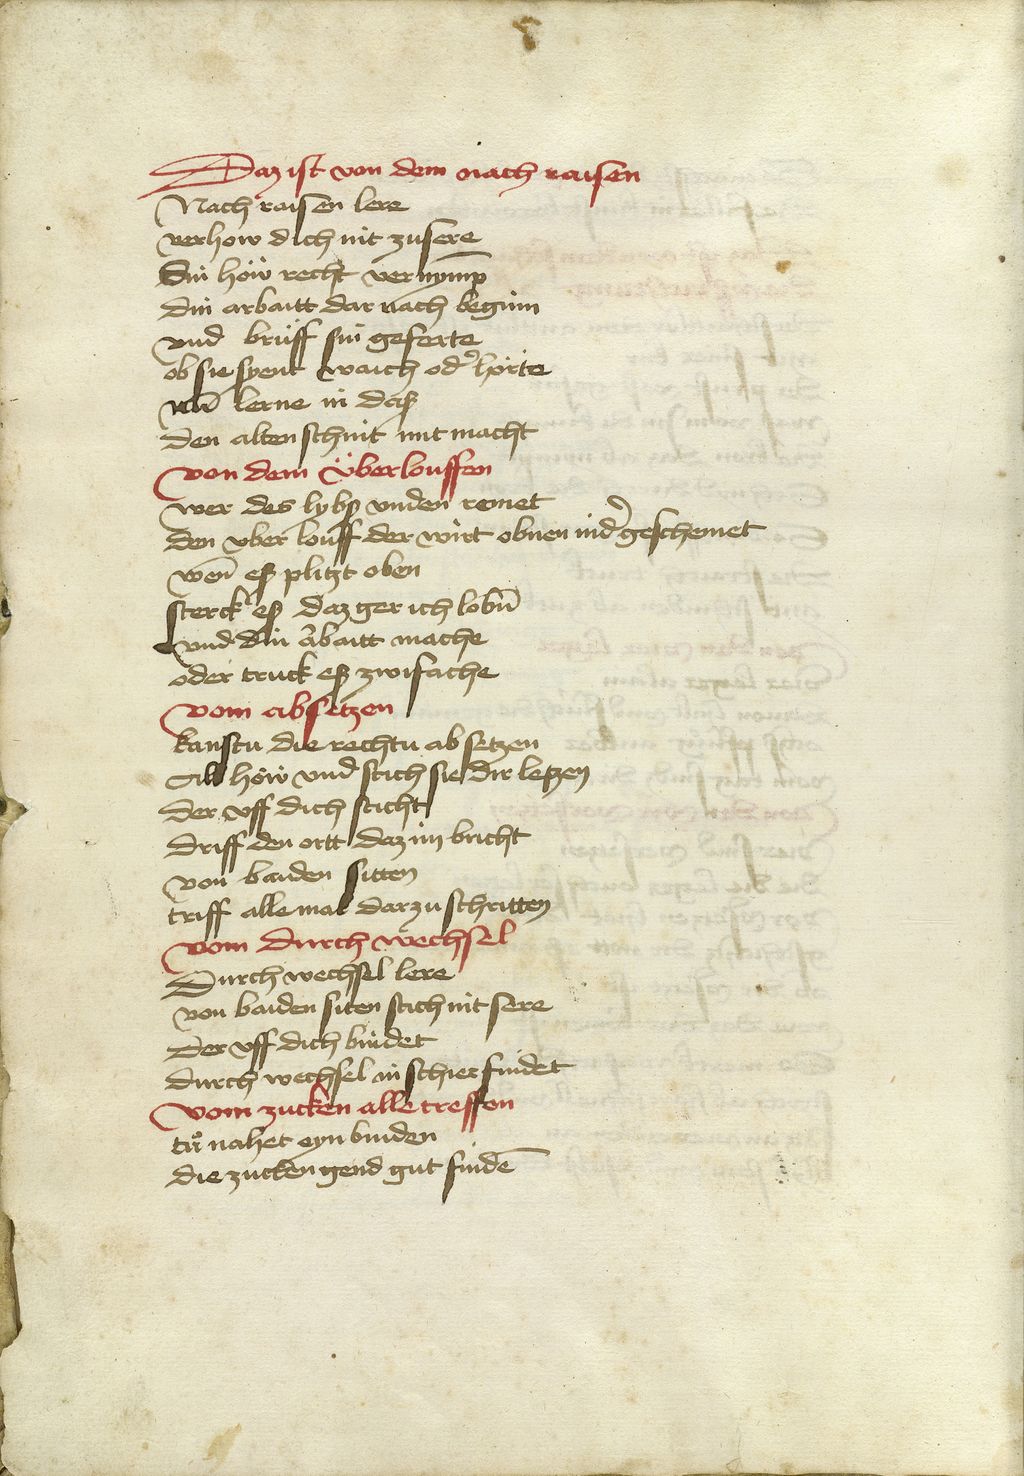 Daz ist von dem nach raisen
Nach raisen lere
verhow dich nit zu sere
Sin höw recht vernym̄p
din arbaitt dar nach beginn
vnd brüff sin geferte
ob sie syent waich od' hörte
nū lerne in daß
den alten schnit mit macht
von dem Überlouffen
wer des lybß vnden remet
den vber louff der wirt obnen ind' geschemet
wen̄ eß plitzt oben
sterck eß daz ger ich lobn̄
vnd din arbaitt mache
oder truck eß zwifache
vom absetzen
kanstu die rechtu ab setzen
All höw vnd stich sie dir leßzen
der vff dich sticht
driff den ortt daz im bricht
von baiden sitten
triff alle mal darzu schritten
vom durch wechsel
Durch wechsel lere
von baiden siten stich nit sere
der vff dich bindet
durch wechsel in schier findet
vom zucken alle treffen
tů nahet eyn binden
die zucken gend gut findē